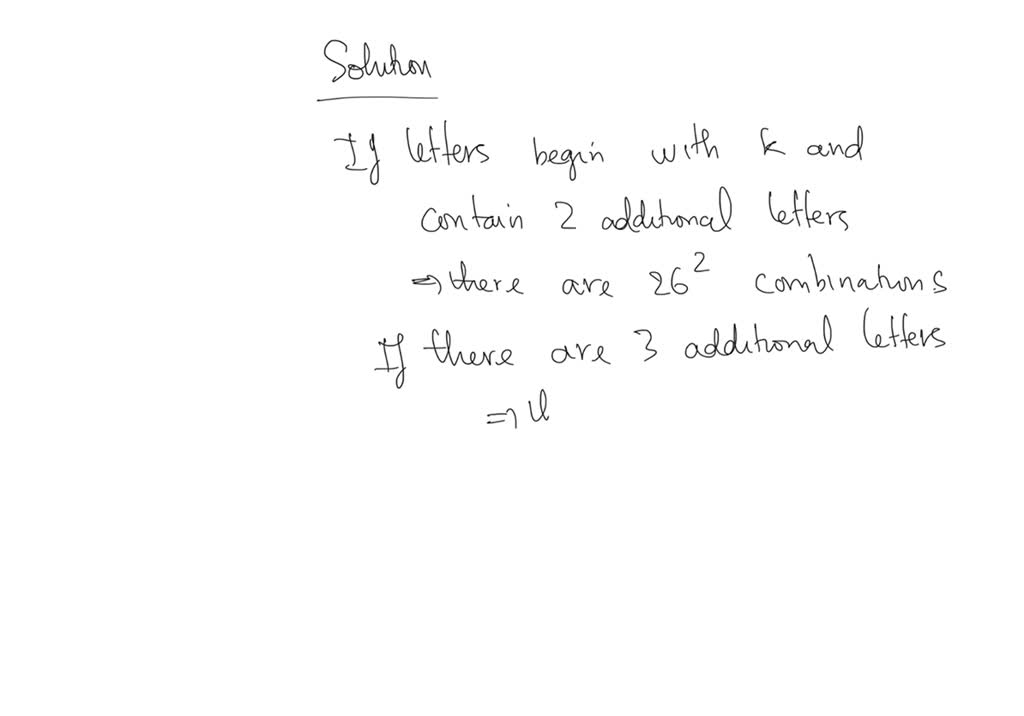 Solution
If letters begin with k and
contain 2 additional letters
⇒ there are 26² combinations
If there are 3 additional letters
⇒